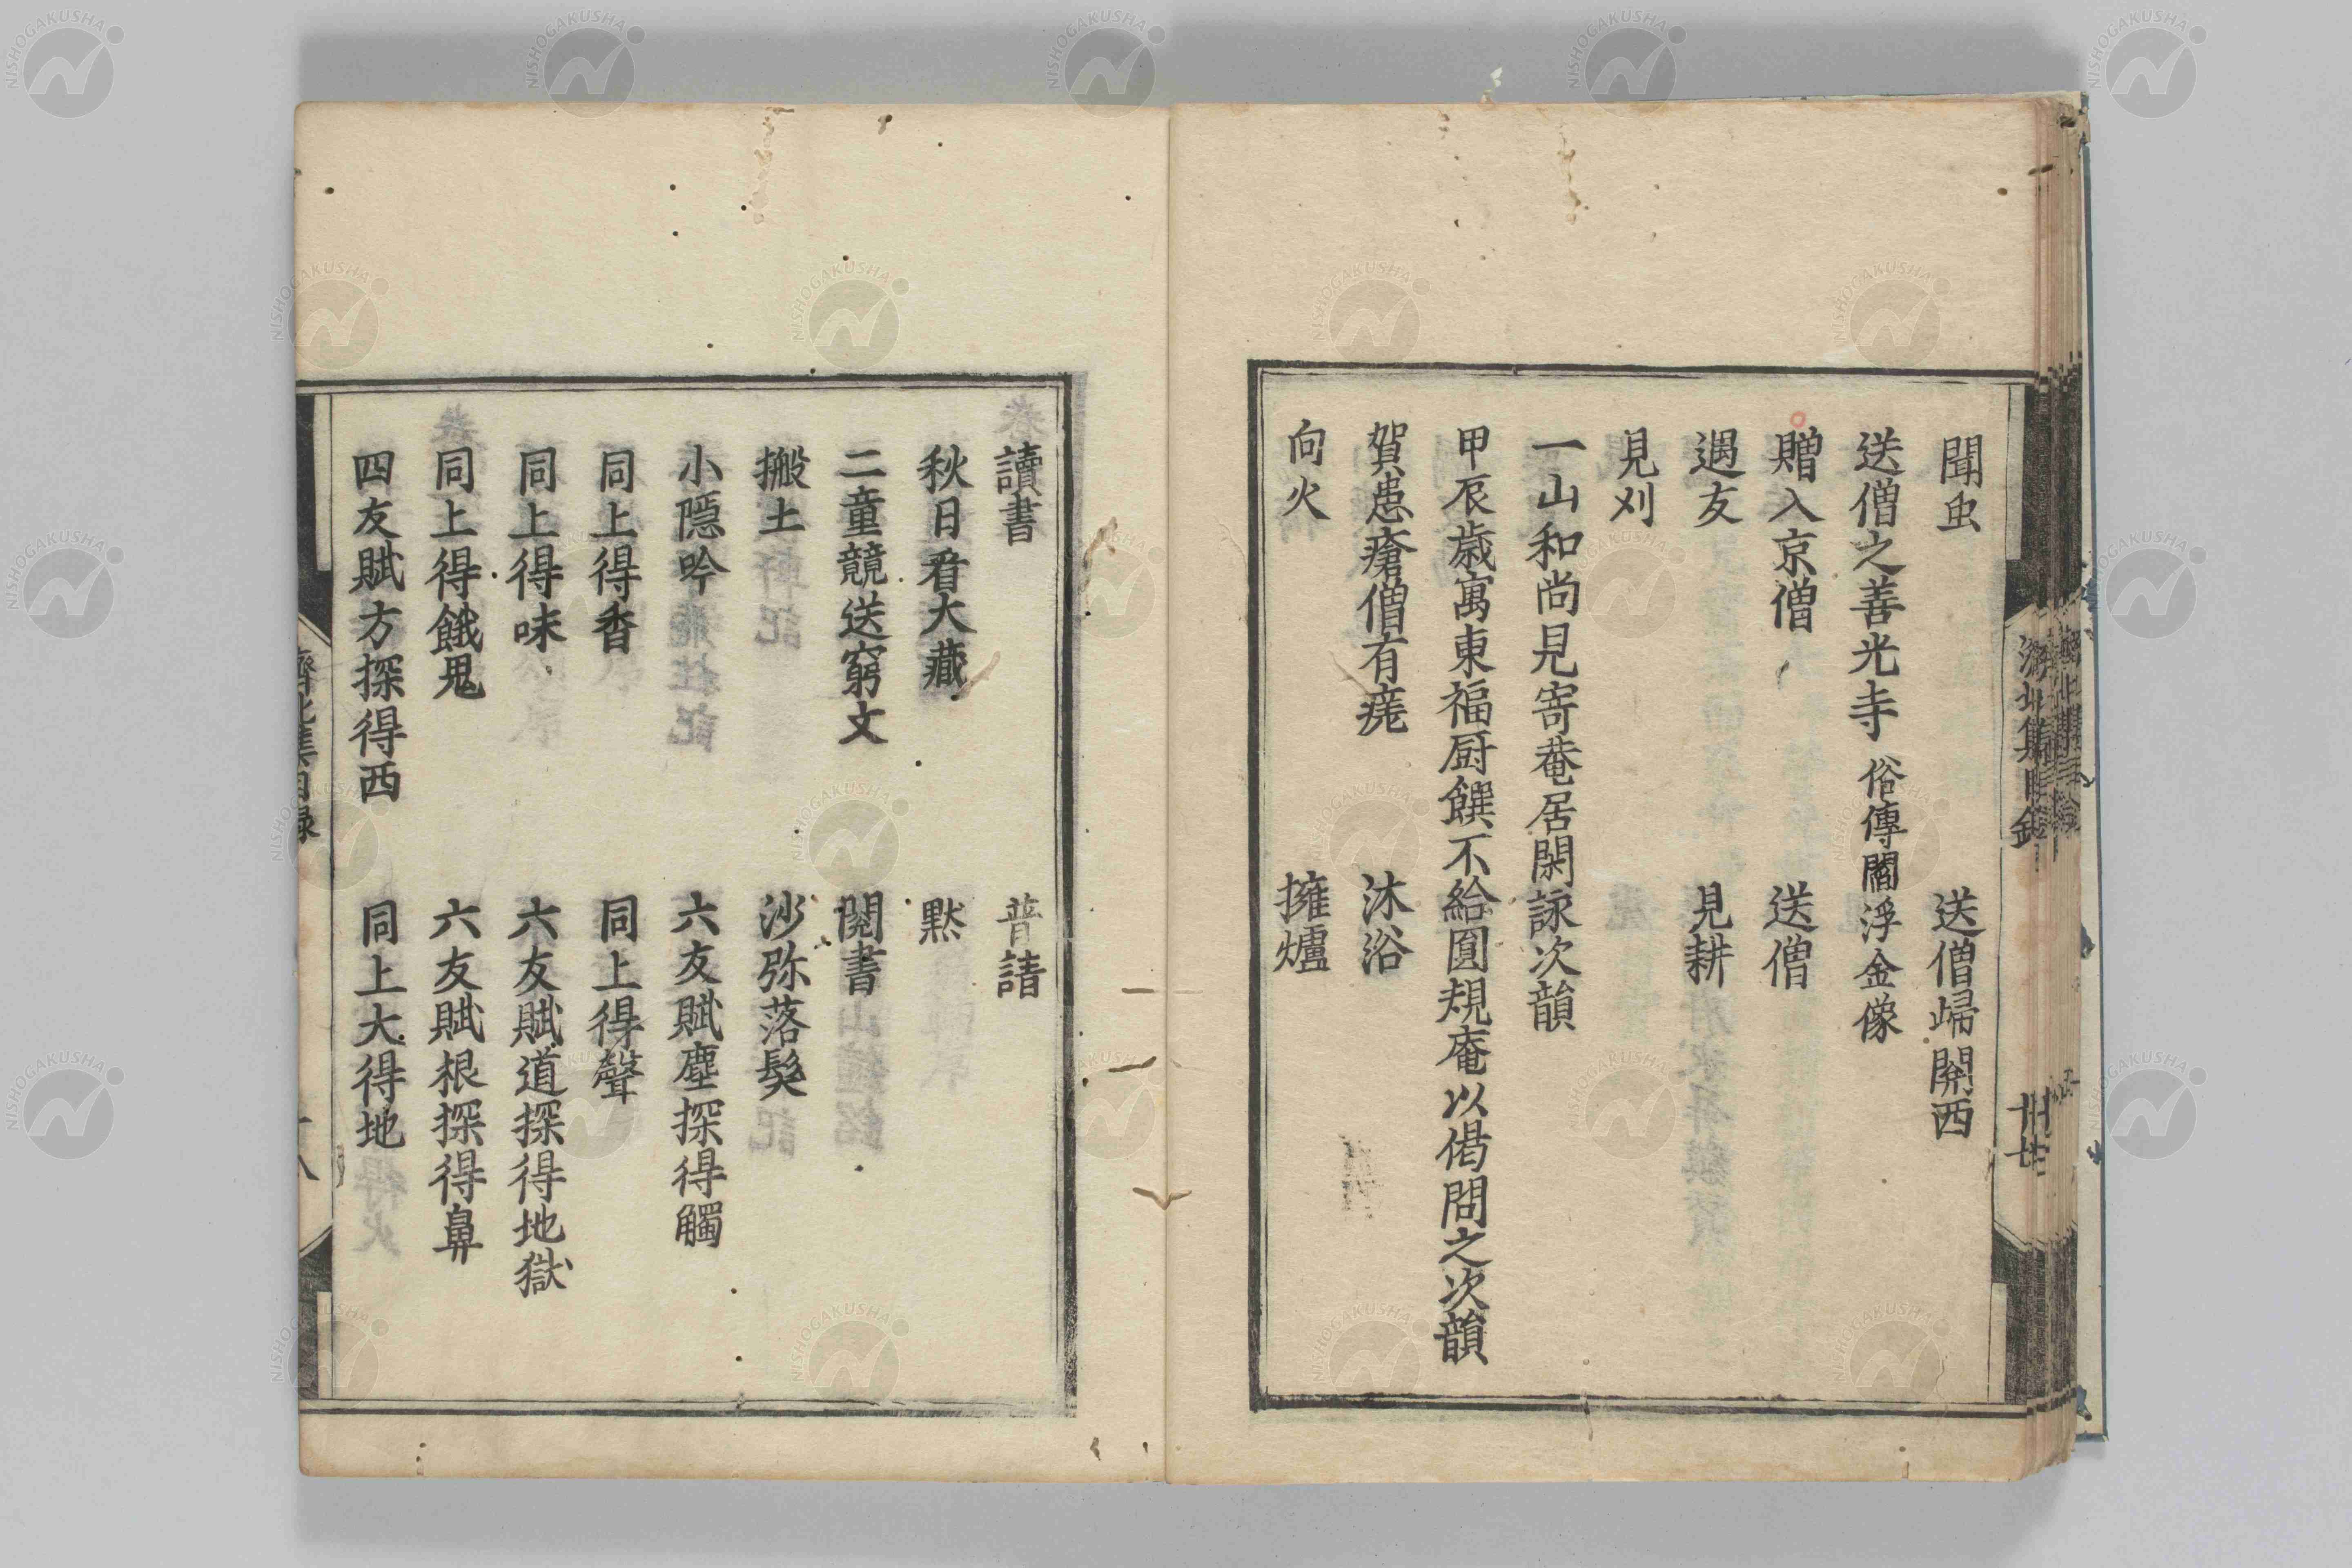 聞虫　送僧歸關西
送僧之善光寺 俗傳閻浮金像
贈入京僧　送僧
遇友　見耕
見刈
一山和尚見寄菴居閑詠次韻
甲辰歲寓東福厨饌不給圓規庵以偈問之次韻
賀患瘡僧有㾗　沐浴
向火　擁爐
讀書　普請
秋日看大藏　默
二童競送窮文　閱書
搬土　沙弥落髮
小隱吟　六友賦塵探得觸
同上得香　同上得聲
同上得味　六友賦道探得地獄
同上得餓鬼　六友賦根探得鼻
四友賦方探得西　同上大得地
濟北集目録
NISHOGAKUSHA